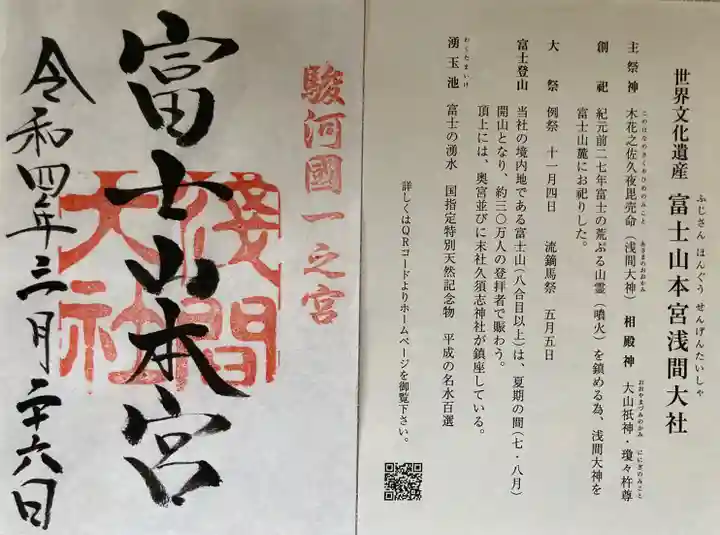 駿河國一之宮
富士山本宮
淺間大社
令和四年三月二十六日
世界文化遺産 富士山本宮浅間大社
ふじさん ほんぐう せんげんたいしゃ
主祭神 木花之佐久夜毘売命(浅間大神) 相殿神 大山祇神・瓊々杵尊
このはなのさくやひめのみこと あさまのおおかみ おおやまづみのかみ ににぎのみこと
創祀 紀元前二七年富士の荒ぶる山霊(噴火)を鎮める為、浅間大神を
富士山麓にお祀りした。
大祭 例祭 十一月四日 流鏑馬祭 五月五日
富士登山 当社の境内地である富士山(八合目以上)は、夏期の間(七・八月)
開山となり、約三〇万人の登拝者で賑わう。
頂上には、奥宮並びに末社久須志神社が鎮座している。
湧玉池 富士の湧水 国指定特別天然記念物 平成の名水百選
わくたまいけ
詳しくはQRコードよりホームページを御覧下さい。